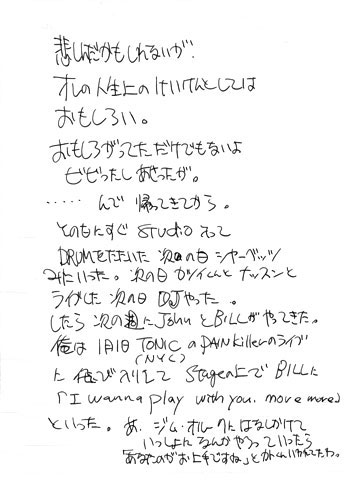 悲しんだかもしれないが、
オレの人生上のけいけんとしては
おもしろい。
おもしろがってただけでもないよ
ビビったし あせったが。
‥‥‥ んで 帰ってきてから。
そのもにすぐ STUDIO 入って
DRUMをたたいた 次の日 シャーベッツ
みにいった。次の日 カジイムとナッスンと
ライブした 次の日 DJやった 。
したら 次の週に John と BILL がやってきた。
俺は 1月1日 TONIC のPAINkillerのライブ
(NYC)
に 飛び入りして Stageの上で BILLに
「I wanna play with you. more more」
といった。 あ、ジム・オルークにはなしかけて
いっしょになんかやろっていったら
「あなたのがお上手ですね」とかいわれてたわ。